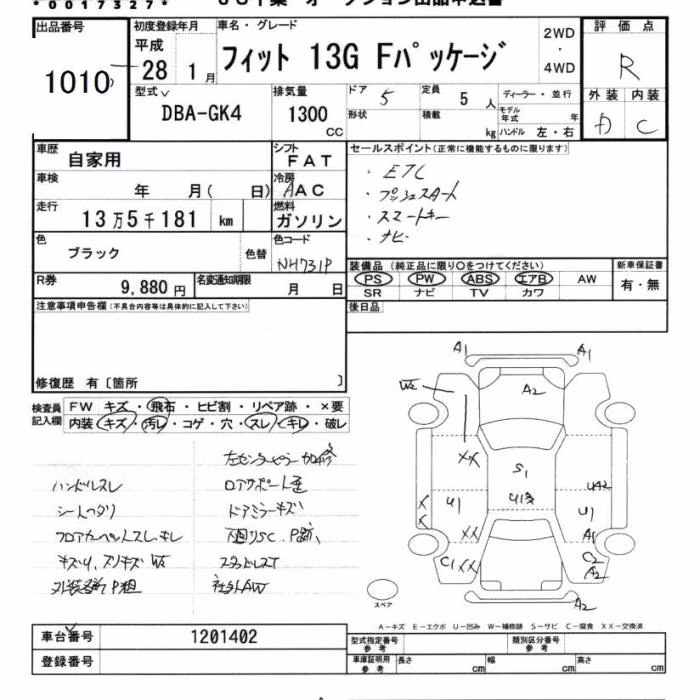 *0017327*
出品番号
1010
初度登録年月
平成
28 1月
車名・グレード
フィット 13G Fパッケージ
2WD
・
4WD
評価点
R
型式
DBA-GK4
排気量
1300
CC
ドア 5
形状
定員 5人
積載 kg
ディーラー・並行
モデル年式 年
ハンドル 左・右
外装 内装
D C
車歴
自家用
シフト
FAT
車検
年 月( 日)
冷房
AAC
走行
13万5千181 km
燃料
ガソリン
色
ブラック
色替
色コード
NH731P
R券
9,880円
名変通知期限
月 日
セールスポイント(正常に機能するものに限ります)
・ETC
・プッシュスタート
・スマートキー
・ナビ
装備品(純正品に限り○をつけてください)
PS PW ABS エアB AW
SR ナビ TV カワ
新車保証書
有・無
注意事項申告欄(不具合内容等は具体的に記入して下さい)
後日品
修復歴 有〔箇所 〕
検査員
記入欄
FW キズ・飛石・ヒビ割・リペア跡・×要
内装 キズ・汚レ・コゲ・穴・スレ・キレ・破レ
左センターピラー加修
ハンドルスレ
ロアサポート歪
シートヘタリ
ドアミラーキズ
フロアカーペットスレ、キレ
下回りSC、P跡、
スタッドレスT
社外AW
A1
A1
W2
A2
XX
S1
UA2
X
U1
U1
X
XX
A1
C1
XX
C2
A2
A2
スペア
A−キズ E−エクボ U−凹み W−補修跡 S−サビ C−腐食 XX−交換済
車台番号
1201402
登録番号
型式指定番号
参考
類別区分番号
参考
車庫証明用
参考
長さ cm
幅 cm
高さ cm